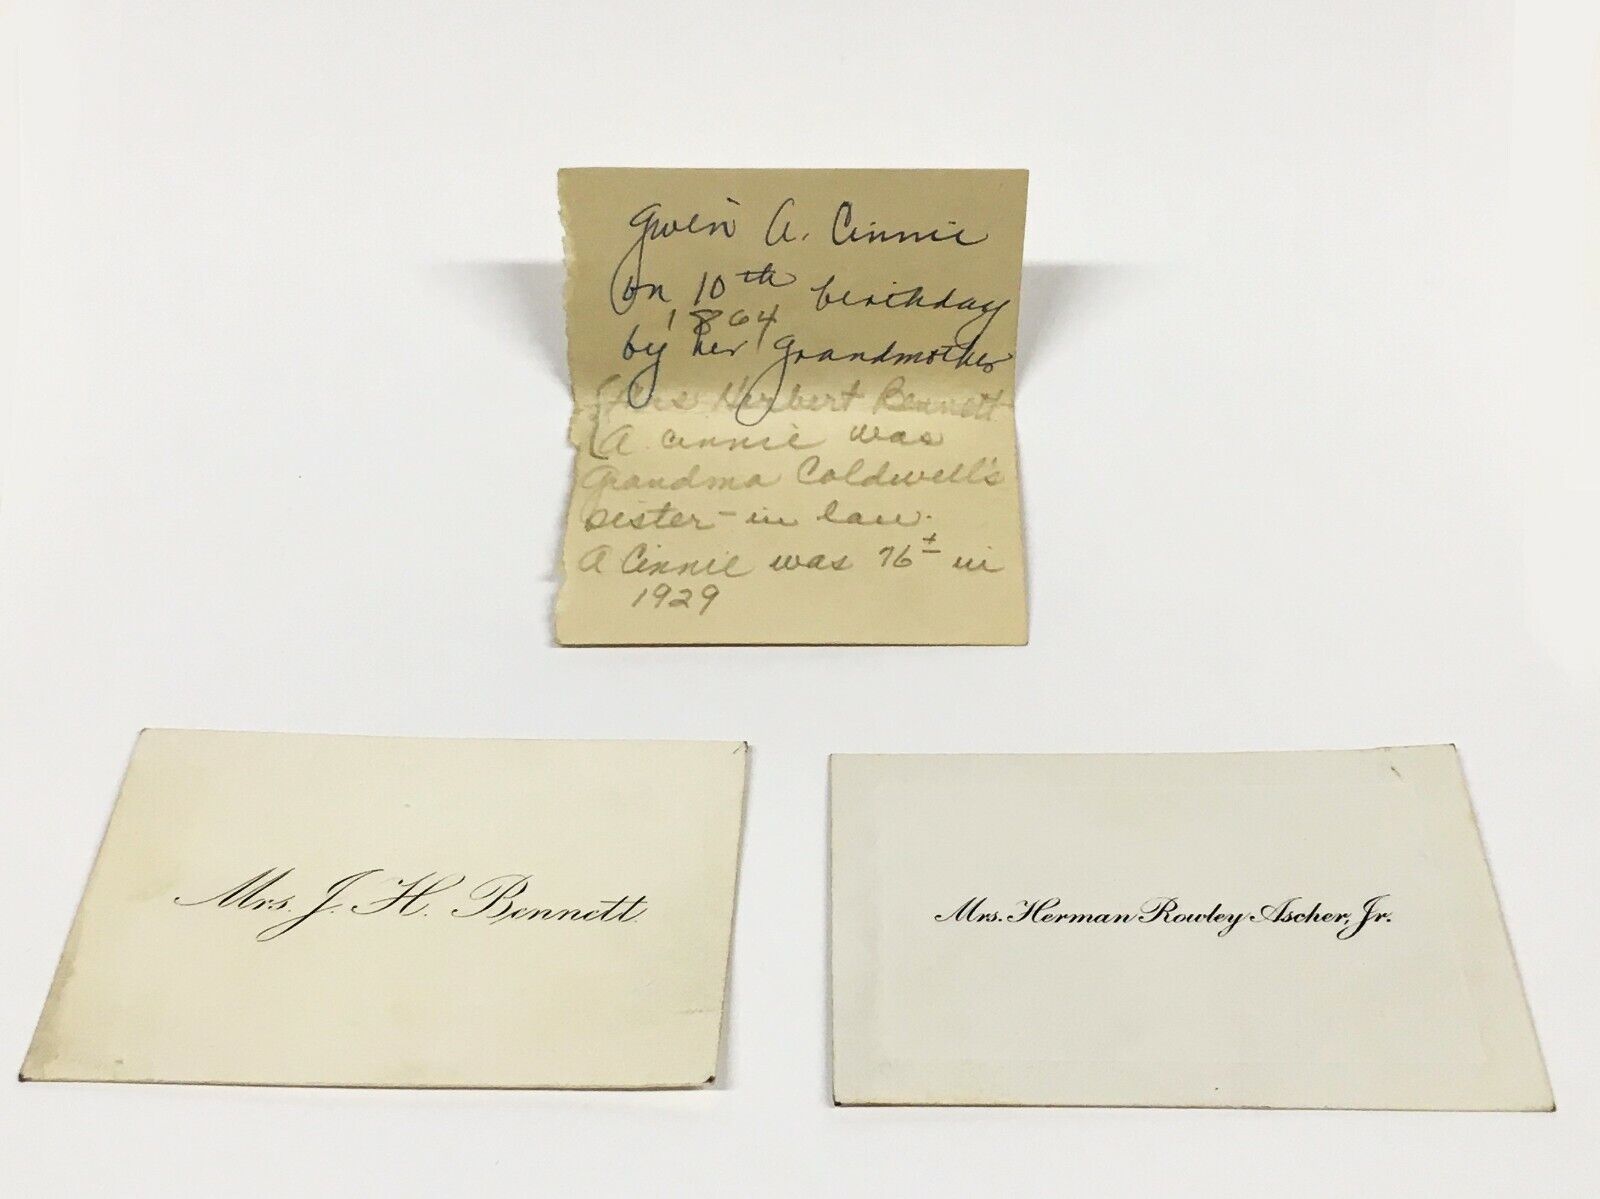 Gwen A. Cinnie
on 10th birthday
1864
by her grandmother
Mrs Herbert Bennett
A. Cinnie was
Grandma Coldwell's
sister-in law.
A Cinnie was 76± in
1929
Mrs. J. H. Bennett.
Mrs. Herman Rowley Ascher, Jr.